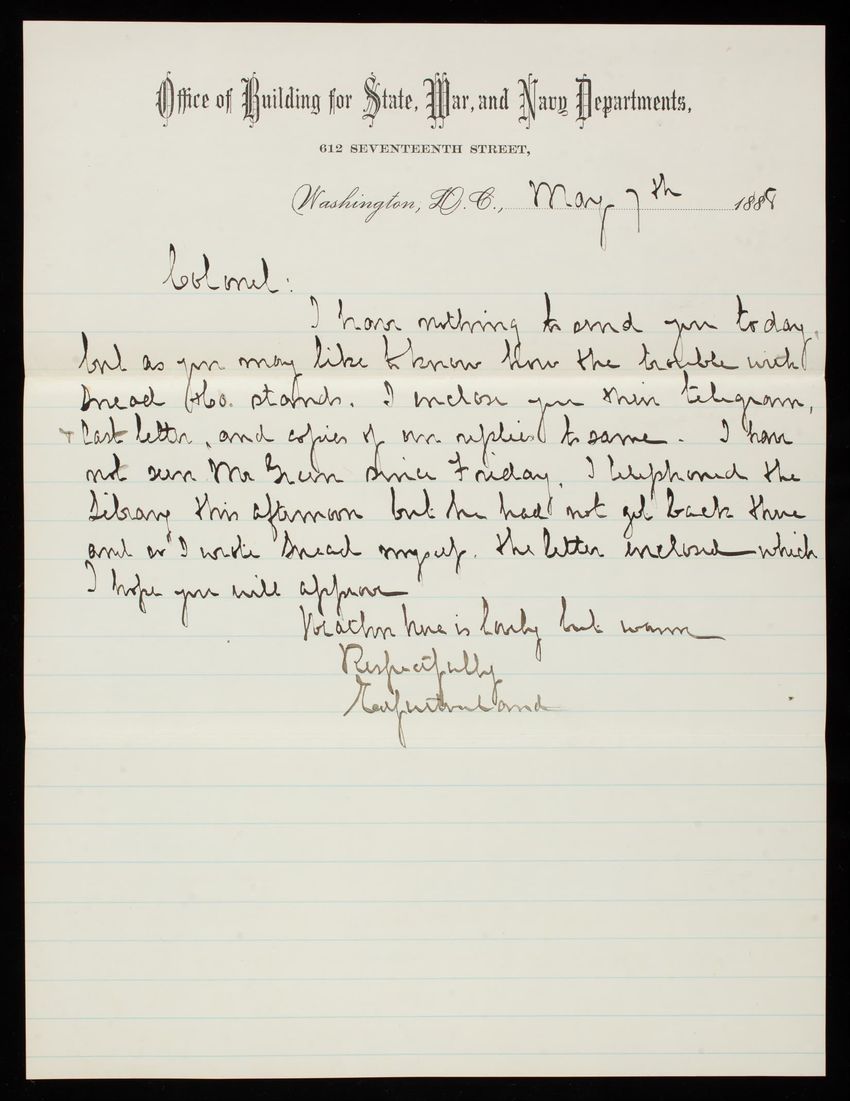 Office of Building for State, War, and Navy Departments,
612 SEVENTEENTH STREET,
Washington, D.C., May 7th 1888
Colonel:
I have nothing to send you today,
but as you may like to know how the trouble with
Snead & Co. stands. I enclose you their telegram,
last letter, and copies of our replies to same. I have
not seen Mr Green since Friday, I telephoned the
Library this afternoon but he had not got back there
and so I wrote Snead myself. the letter enclosed which
I hope you will approve
here is lovely but warm
Respectfully